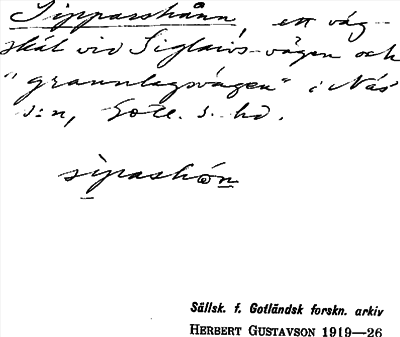 Sippasshånn, ett väg-
skäl vid Siglaivs-vägen och
"grannlagsvägen" i Näs
s:n, Gotl. s. hd.
sìpashån
Sällsk. f. Gotländsk forskn. arkiv
HERBERT GUSTAVSON 1919—26